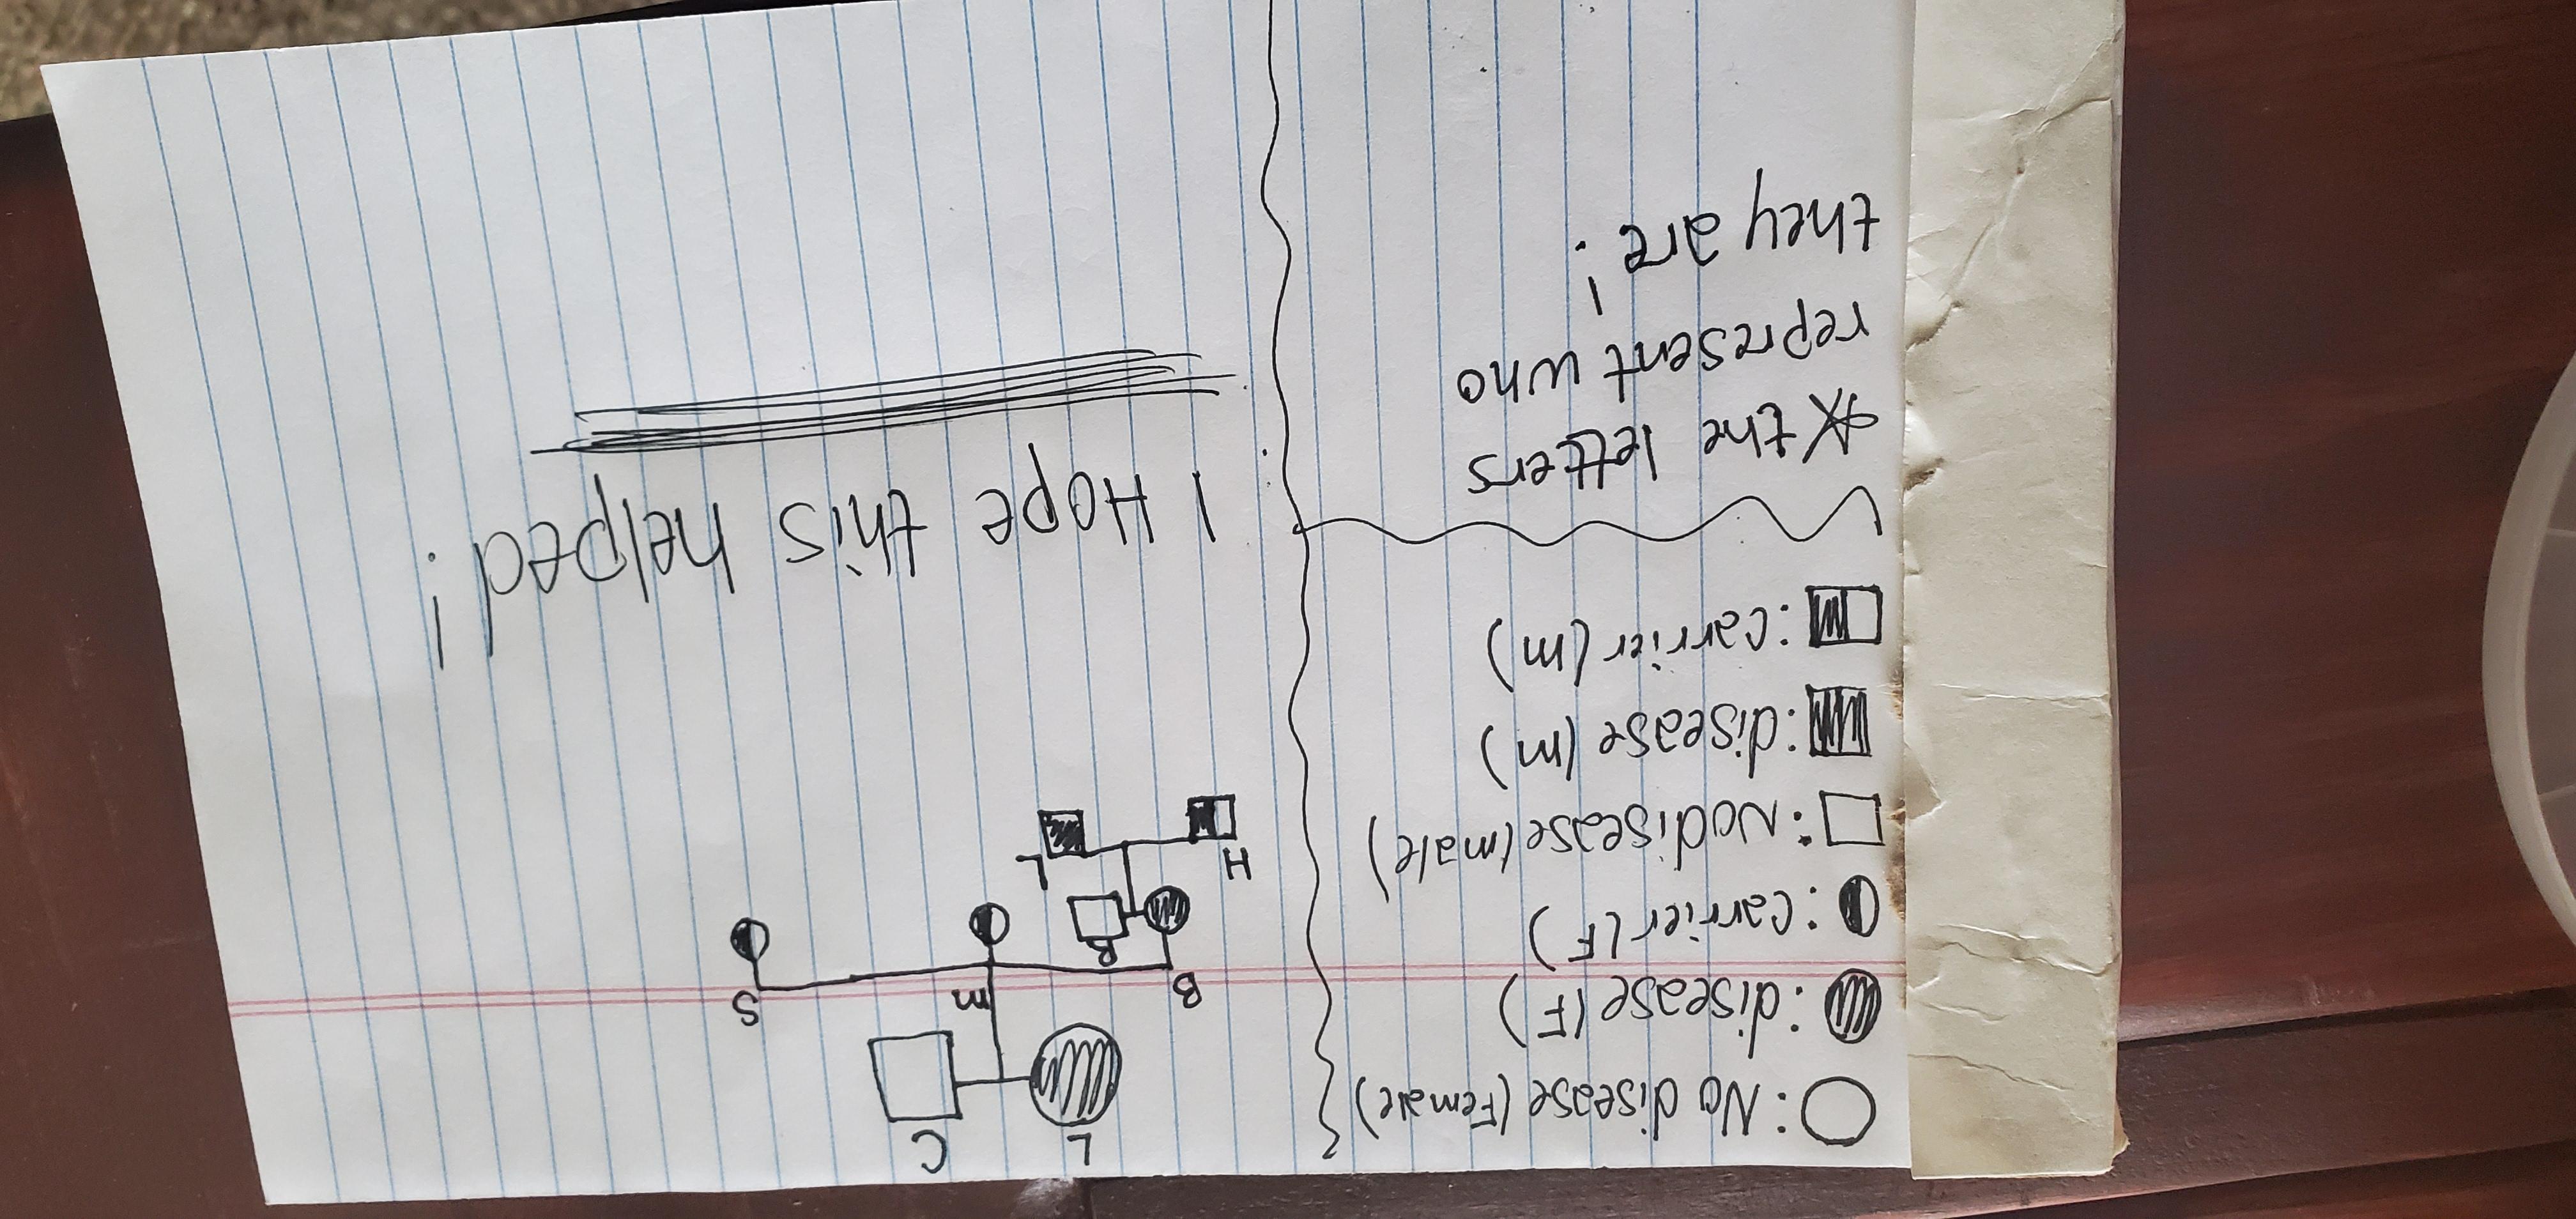 : No disease (Female)
: disease (F)
: carrier (F)
: No disease (male)
: disease (m)
: carrier (m)
* the letters
represent who
they are !
L C
B m S
R
H L
I Hope this helped!